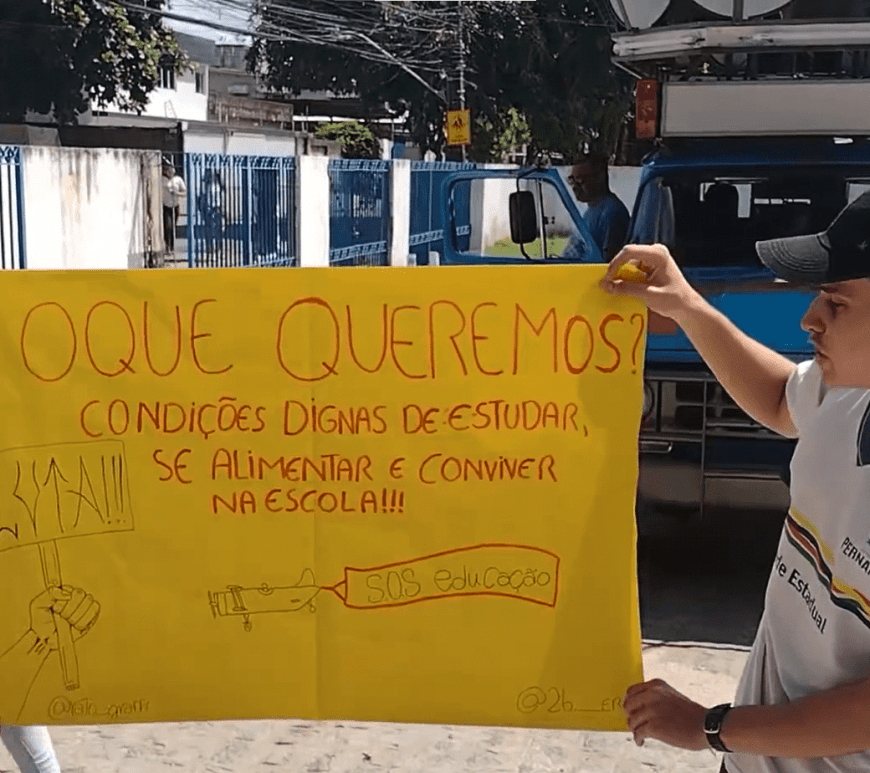 OQUE QUEREMOS?
CONDIÇÕES DIGNAS DE ESTUDAR,
SE ALIMENTAR E CONVIVER
NA ESCOLA!!!
LUTA!!!
S.O.S educação
@2b__ER
PERNA
de Estadual